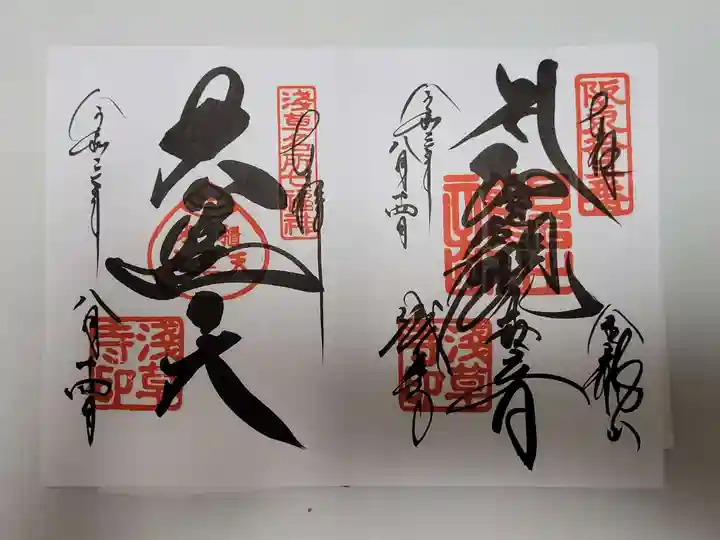 阪東十三番
奉拝
金龍山
聖観世音
令和三年
八月十四日
浅草寺
浅草寺印
浅草名所七福神
奉拝
大黒天
令和三年
八月十四日
浅草寺印